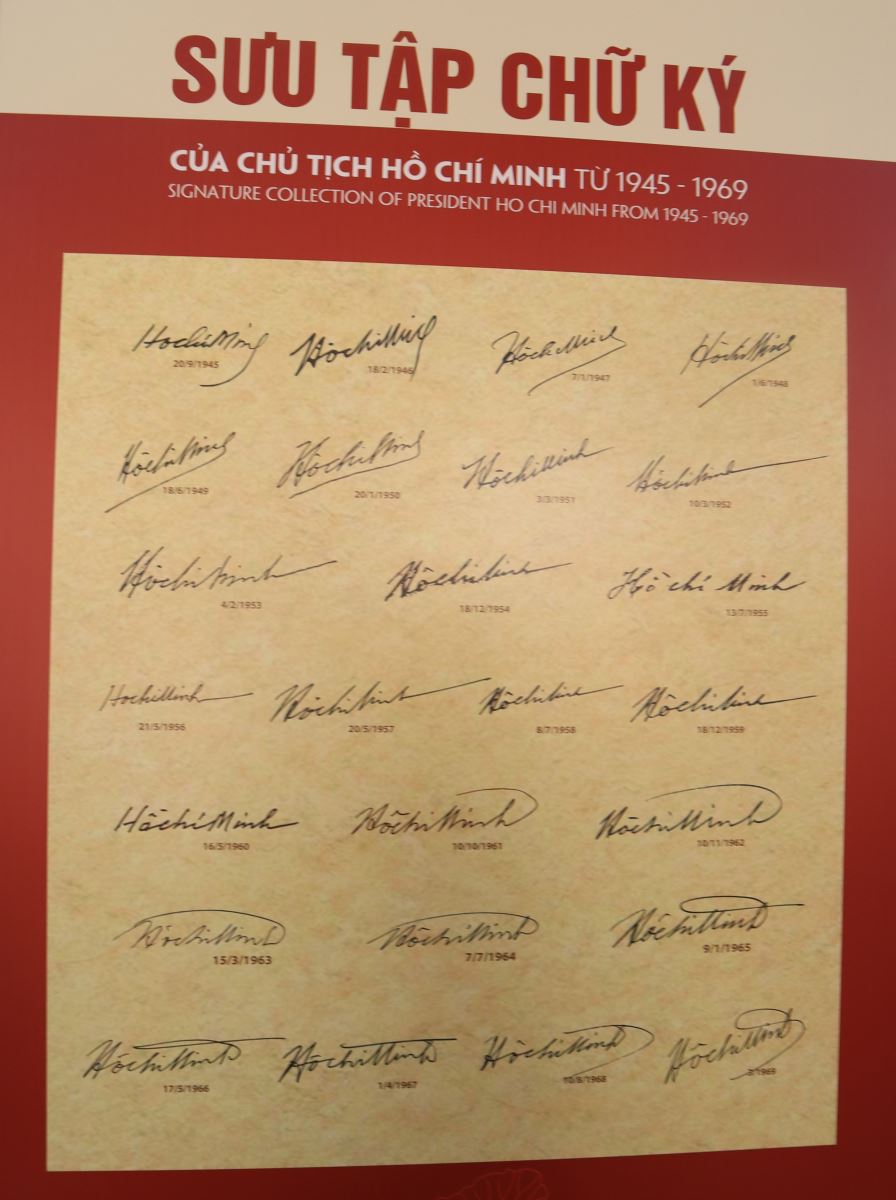 SƯU TẬP CHỮ KÝ
CỦA CHỦ TỊCH HỒ CHÍ MINH TỪ 1945 - 1969
SIGNATURE COLLECTION OF PRESIDENT HO CHI MINH FROM 1945 - 1969
HochíMinh HồchíMinh HồchiMinh HồchíMinh
20/9/1945 18/2/1946 7/1/1947 1/6/1948
HồchíMinh HồchíMinh HồchíMinh HồchíMinh
18/6/1949 20/1/1950 3/3/1951 10/3/1952
HồchíMinh HồchíMinh Hồ chí Minh
4/2/1953 18/12/1954 13/7/1955
HochiMinh HồchíMinh HồchíMinh HồchíMinh
21/5/1956 20/5/1957 8/7/1958 18/12/1959
HồchíMinh HồchíMinh HồchíMinh
16/5/1960 10/10/1961 10/11/1962
HồchíMinh HồchíMinh HồchíMinh
15/3/1963 7/7/1964 9/1/1965
HồchíMinh HồchíMinh HồchíMinh HồchíMinh
17/5/1966 1/4/1967 10/8/1968 3/1969